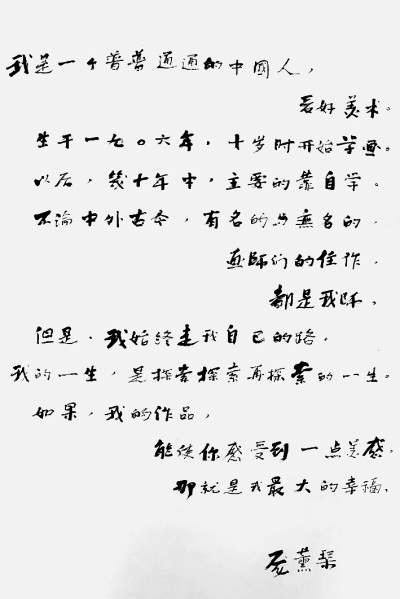 我是一个普普通通的中國人，
爱好美术。
生于一九〇六年，十岁时开始学画。
以后，幾十年中，主要的靠自学。
不論中外古今，有名的与無名的，
画师们的佳作，
都是我师。
但是，我始终走我自己的路，
我的一生，是探索探索再探索的一生。
如果，我的作品，
能使你感受到一点美感，
那就是我最大的幸福。
庞薰琹